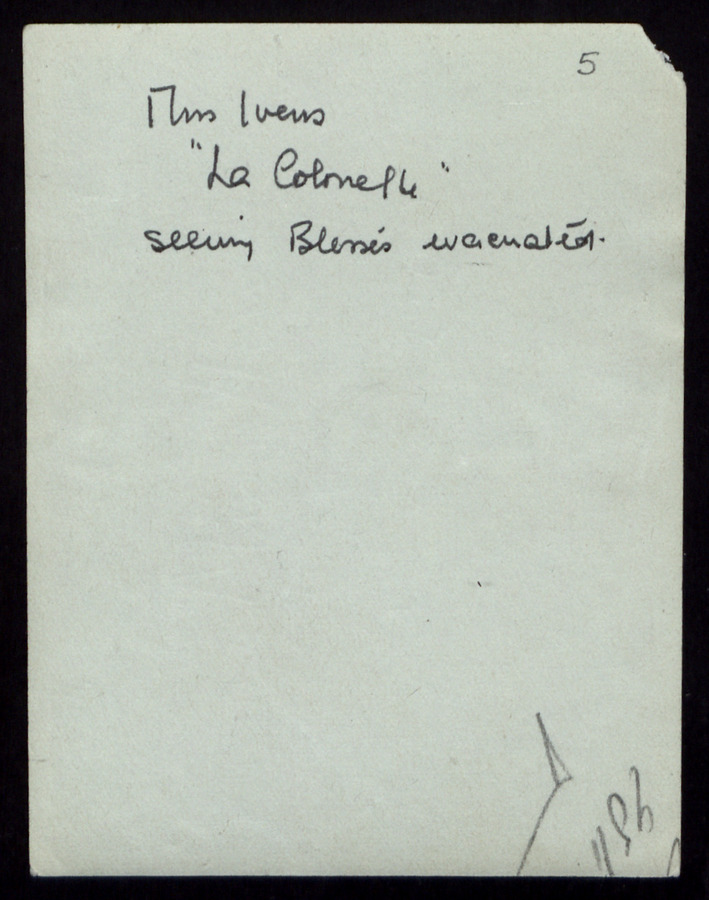 5
Miss Ivens
"La Colonelle"
seeing Blessés evacuated.